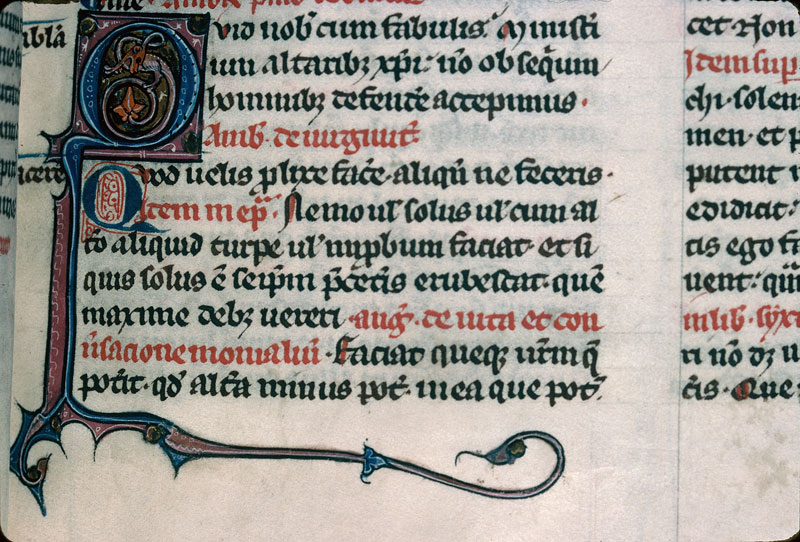 Quid uob̄ cum fabulis. Ministri
um altaribꝫ xp̄i. nō obsequium
hominibꝫ deferre accepimus.
Amb̄. de uirginit̄.
Quod uelis prolixe facere aliqn̄ ne feceris.
Item in ep̄. Nemo ul' solus ul' cum al
t̄o aliquid turpe ul' inprobum faciat. et si
quis solus ē seip̄m p̄ ceteris erubescat. quē
maxime debꝫ uereri. auḡ. de uita et con
u̓sacione monialiū. Faciat queqꝫ
potit. qd̄ alt̓a minus pot̄. in ea que pot̄.
cet. Non
Item sup
chi. solen
men. et p
putent
edidicit.
cis ego fa
uent. qm̄
in lib. syr
ri nō dꝫ u
cis. Que